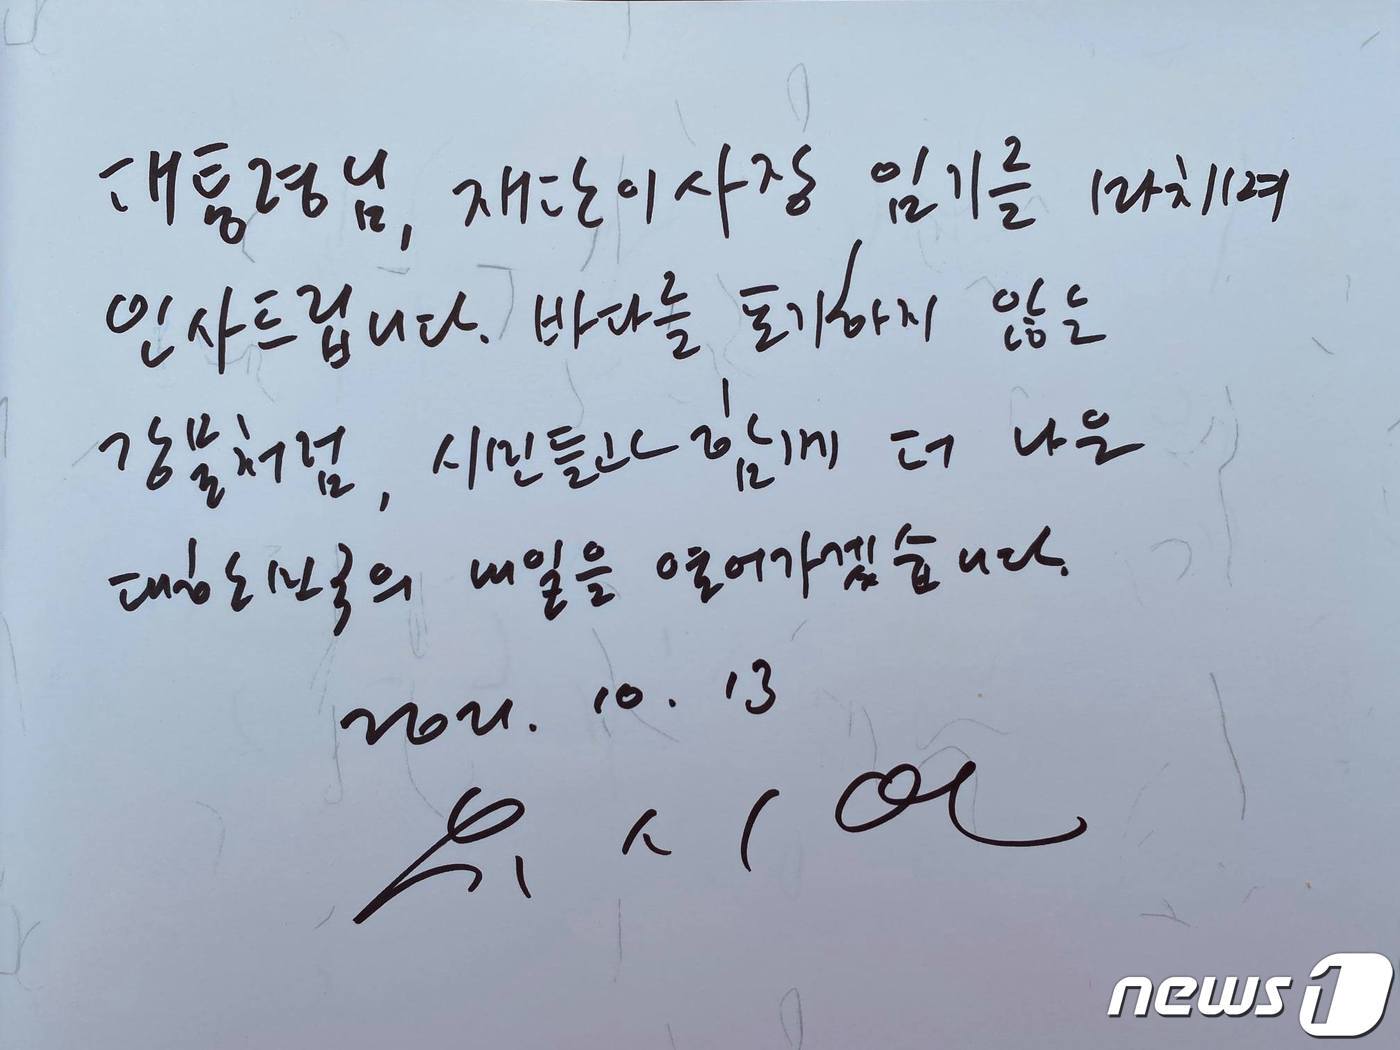 대통령님, 재단이사장 임기를 마치며
인사드립니다. 바다를 포기하지 않는
강물처럼, 시민들과 함께 더 나은
대한민국의 내일을 열어가겠습니다.
2021. 10. 13
유시민
news1